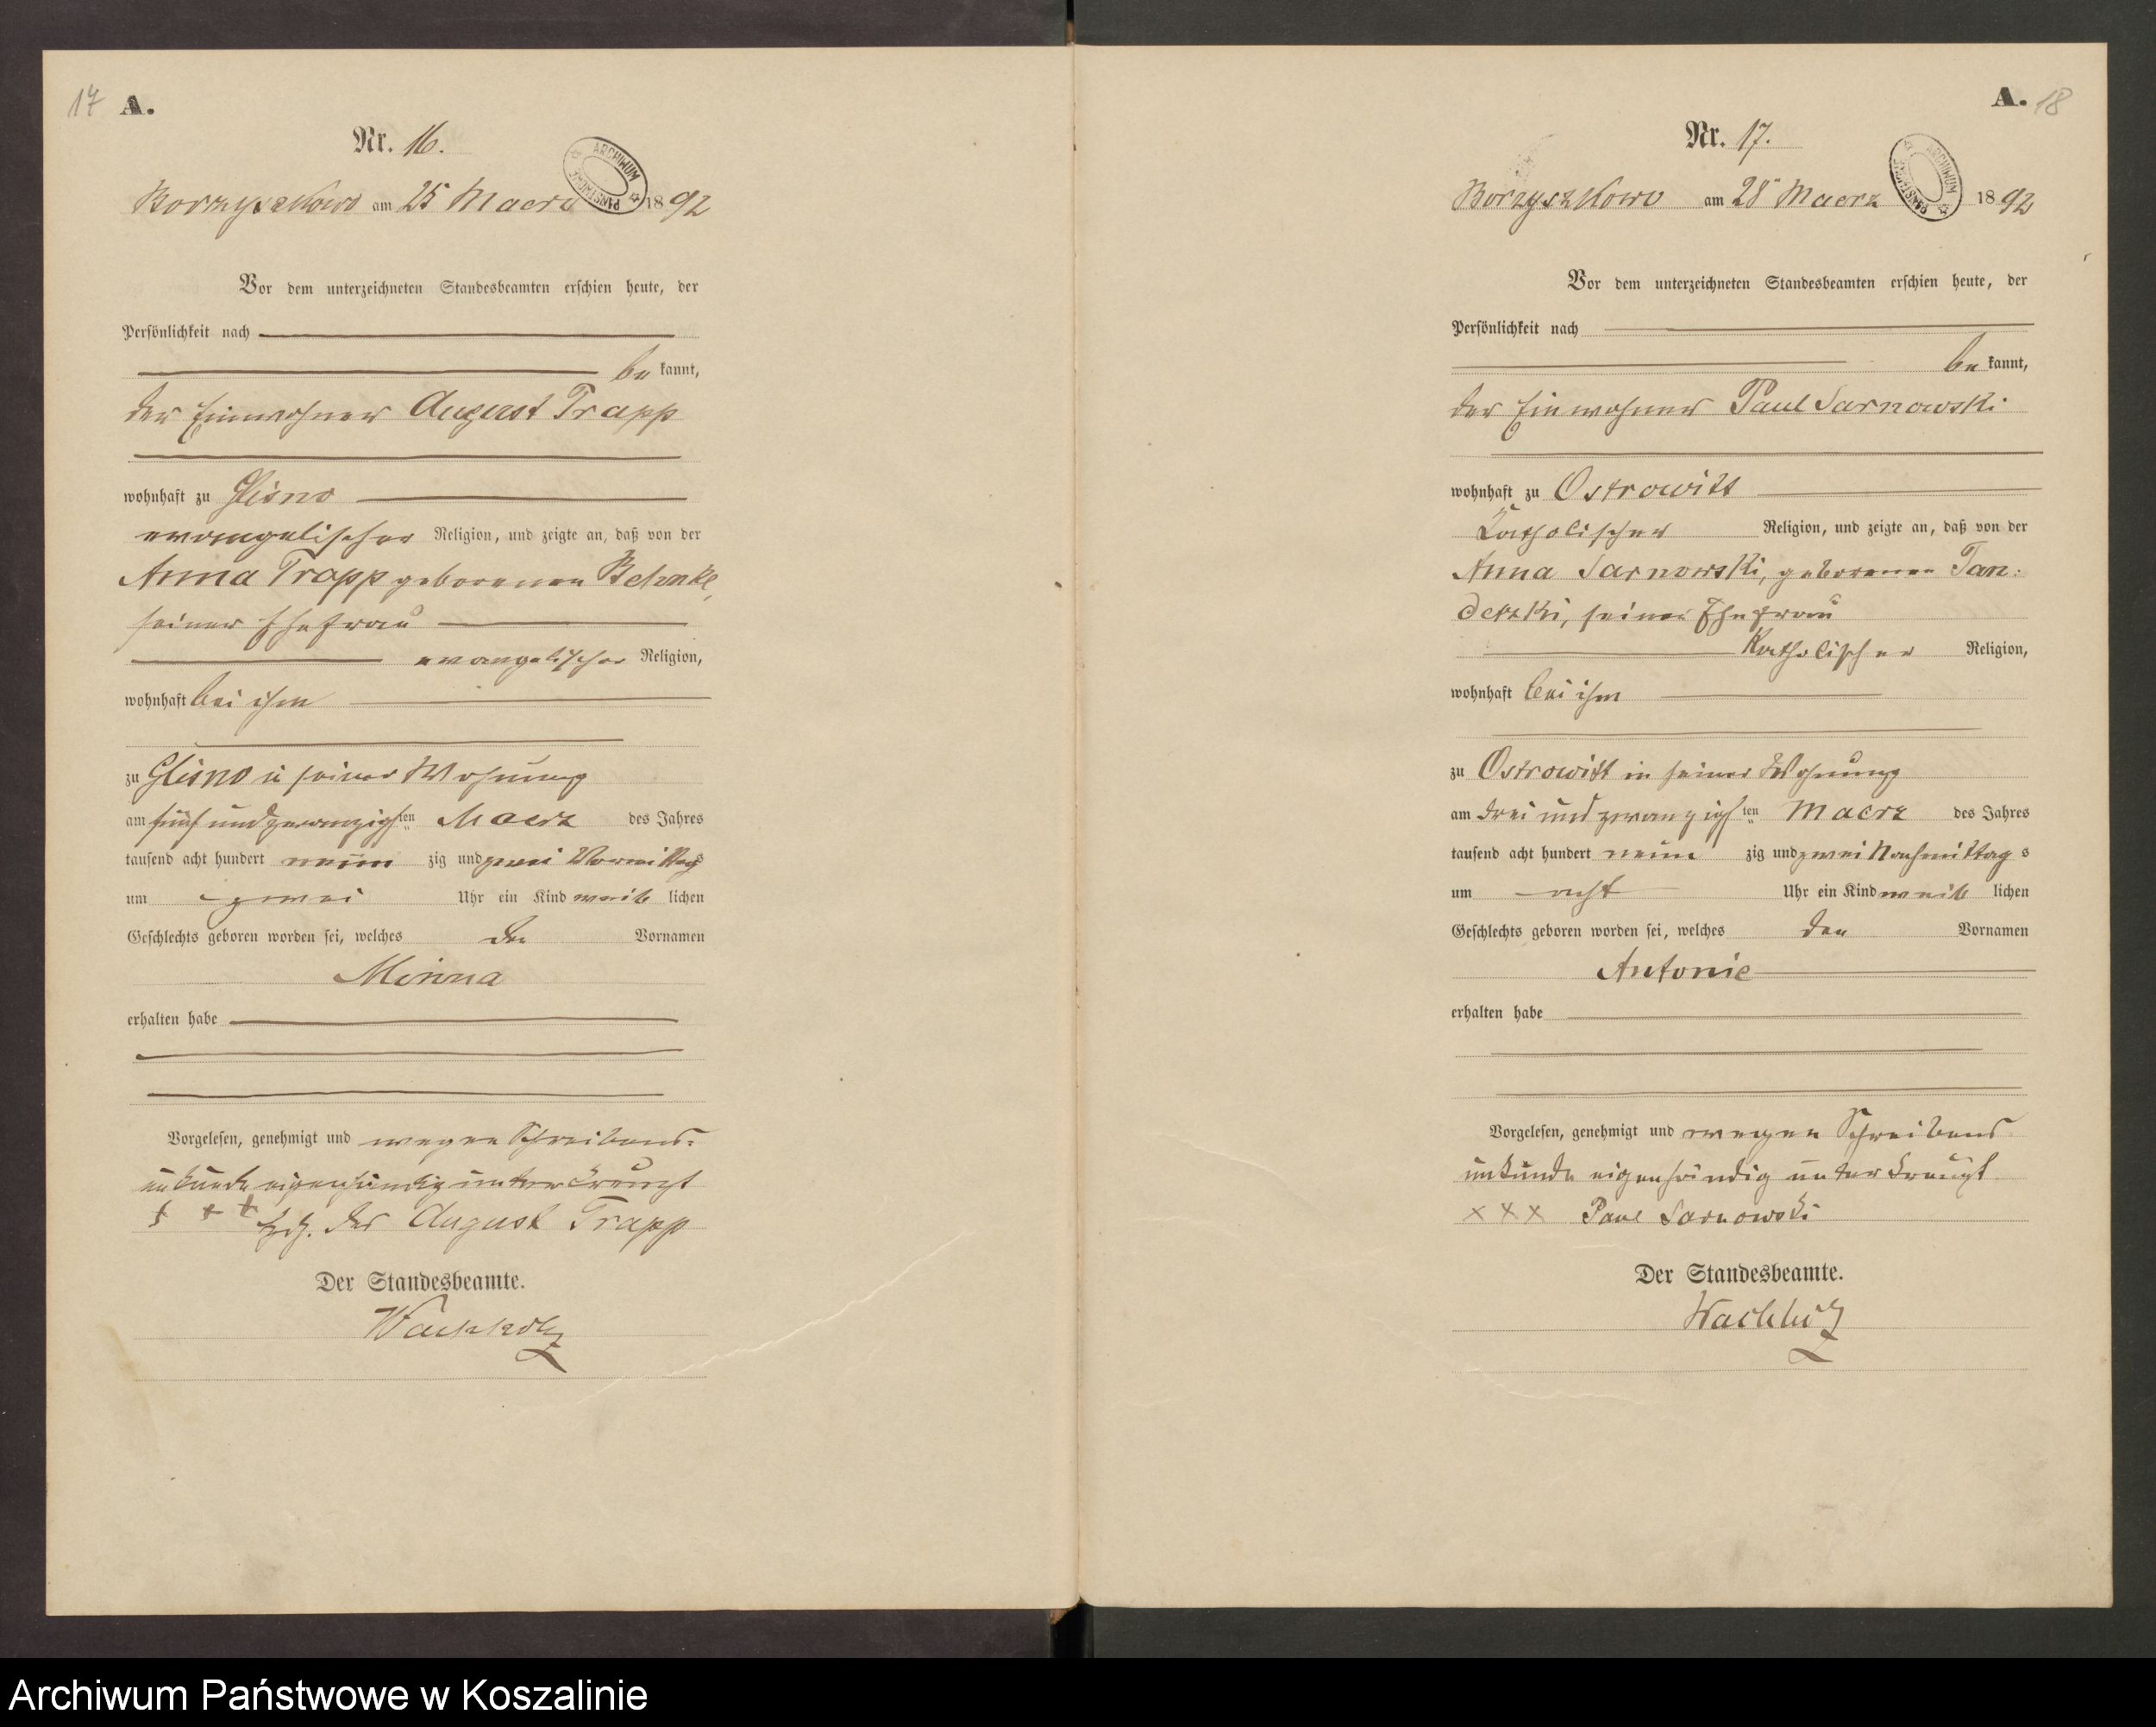 17 A.
Nr. 16.
ARCHIWUM PAŃSTWOWE
Borzyszkowo am 25 Maerz 1892
Vor dem unterzeichneten Standesbeamten erschien heute, der
Persönlichkeit nach
be kannt,
der Einwohner August Trapp
wohnhaft zu Glisno
evangelischer Religion, und zeigte an, daß von der
Anna Trapp geborenen
seiner Ehefrau
evangelischer Religion,
wohnhaft bei ihm
zu Glisno in seiner Wohnung
am fünf und zwanzigsten Maerz des Jahres
tausend acht hundert neun zig und zwei Vormittags
um zwei Uhr ein Kind weib lichen
Geschlechts geboren worden sei, welches den Vornamen
Minna
erhalten habe
Vorgelesen, genehmigt und wegen Schreibens-
unkunde eigenhändig unterkreuzt
+ + + der August Trapp
Der Standesbeamte.
A. 18
Nr. 17.
ARCHIWUM PAŃSTWOWE
Borzyszkowo am 28 Maerz 1892
Vor dem unterzeichneten Standesbeamten erschien heute, der
Persönlichkeit nach
be kannt,
der Einwohner Paul Sarnowski
wohnhaft zu Ostrowitt
Katholischer Religion, und zeigte an, daß von der
Anna Sarnowski, geborenen
seiner Ehefrau
Katholischer Religion,
wohnhaft bei ihm
zu Ostrowitt in seiner Wohnung
am drei und zwanzigsten Maerz des Jahres
tausend acht hundert neun zig und zwei Nachmittags
um acht Uhr ein Kind weib lichen
Geschlechts geboren worden sei, welches den Vornamen
Antonie
erhalten habe
Vorgelesen, genehmigt und wegen Schreibens
unkunde eigenhändig unterkreuzt
× × × Paul Sarnowski
Der Standesbeamte.
Archiwum Państwowe w Koszalinie